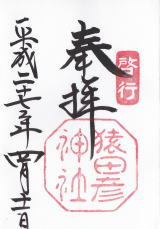 啓行
奉拝
猿田彦
神社
平成二十七年四月十一日